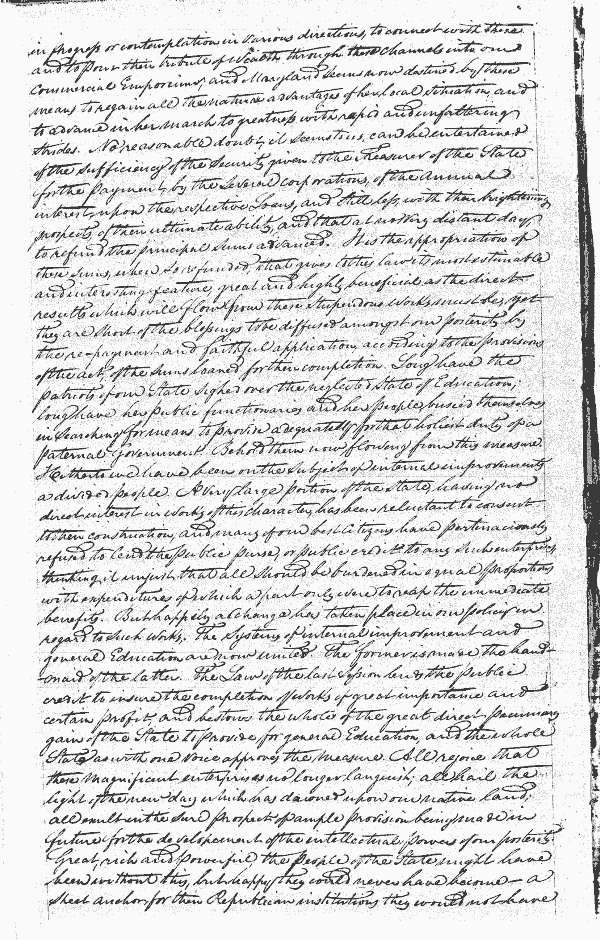 in progress or contemplation in various directions, to connect with these
and to pour their tribute of Wealth through these Channels into our
Commercial Emporiums, and Maryland seems now destined by these
means to regain all the natural advantages of her local situation, and
to advance in her march to greatness with rapid and unfaltering
strides. No reasonable doubt, it seems to us, can be entertained
of the sufficiency of the Security given to the Treasurer of the State
for the Payment, by the several corporations, of the annual
interest upon the respective Loans, and still less, with their brightening
prospects, of their ultimate ability, and that at no very distant day,
to refund the principal sums advanced. It is the appropriation of
these sums, when so refunded, that gives to this law its most estimable
and interesting feature, great and highly beneficial as the direct
results which will flow from these stupendous works must be, yet
they are short of the blessings to be diffused amongst our posterity by
the re-payment and faithful application according to the provisions
of the act, of the sums loaned for their completion. Long have the
Patriots of our State sighed over the neglected state of Education;
long have her public functionaries and her People busied themselves
in searching for means to provide adequately for that holiest duty of a
paternal Government. Behold them now flowing from this measure.
Hitherto we have been on the subject of internal improvements
a divided people. A very large portion of the State, having no
direct interest in works of this character, has been reluctant to consent
to their construction, and many of our best Citizens have pertenaciously
refused to lend the public purse, or public credit to any such enterprises,
thinking it unjust, that all should be burdened in equal proportions
with expenditure of which a part only were to reap the immediate
benefits. But happily a change has taken place in our policy in
regard to such works. The Systems of internal improvement and
general Education are now united. The former is made the hand-
-maid of the latter. The Law of the last Session lends the public
credit to insure the completion of works of great importance and
certain profit, and bestows the whole of the great direct pecuniary
gain of the State to provide for general Education, and the whole
State as with one voice approves the measure. All rejoice that
these magnificent enterprises no longer languish; all hail the
light of the new day which has dawned upon our native land;
all exult in the sure prospect of ample provision being made in
future for the developement of the intellectual powers of our posterity.
Great, rich and powerful, the People of the State might have
been without this, but happy they would never have become – a
sheet anchor for their Republican institutions they would not have